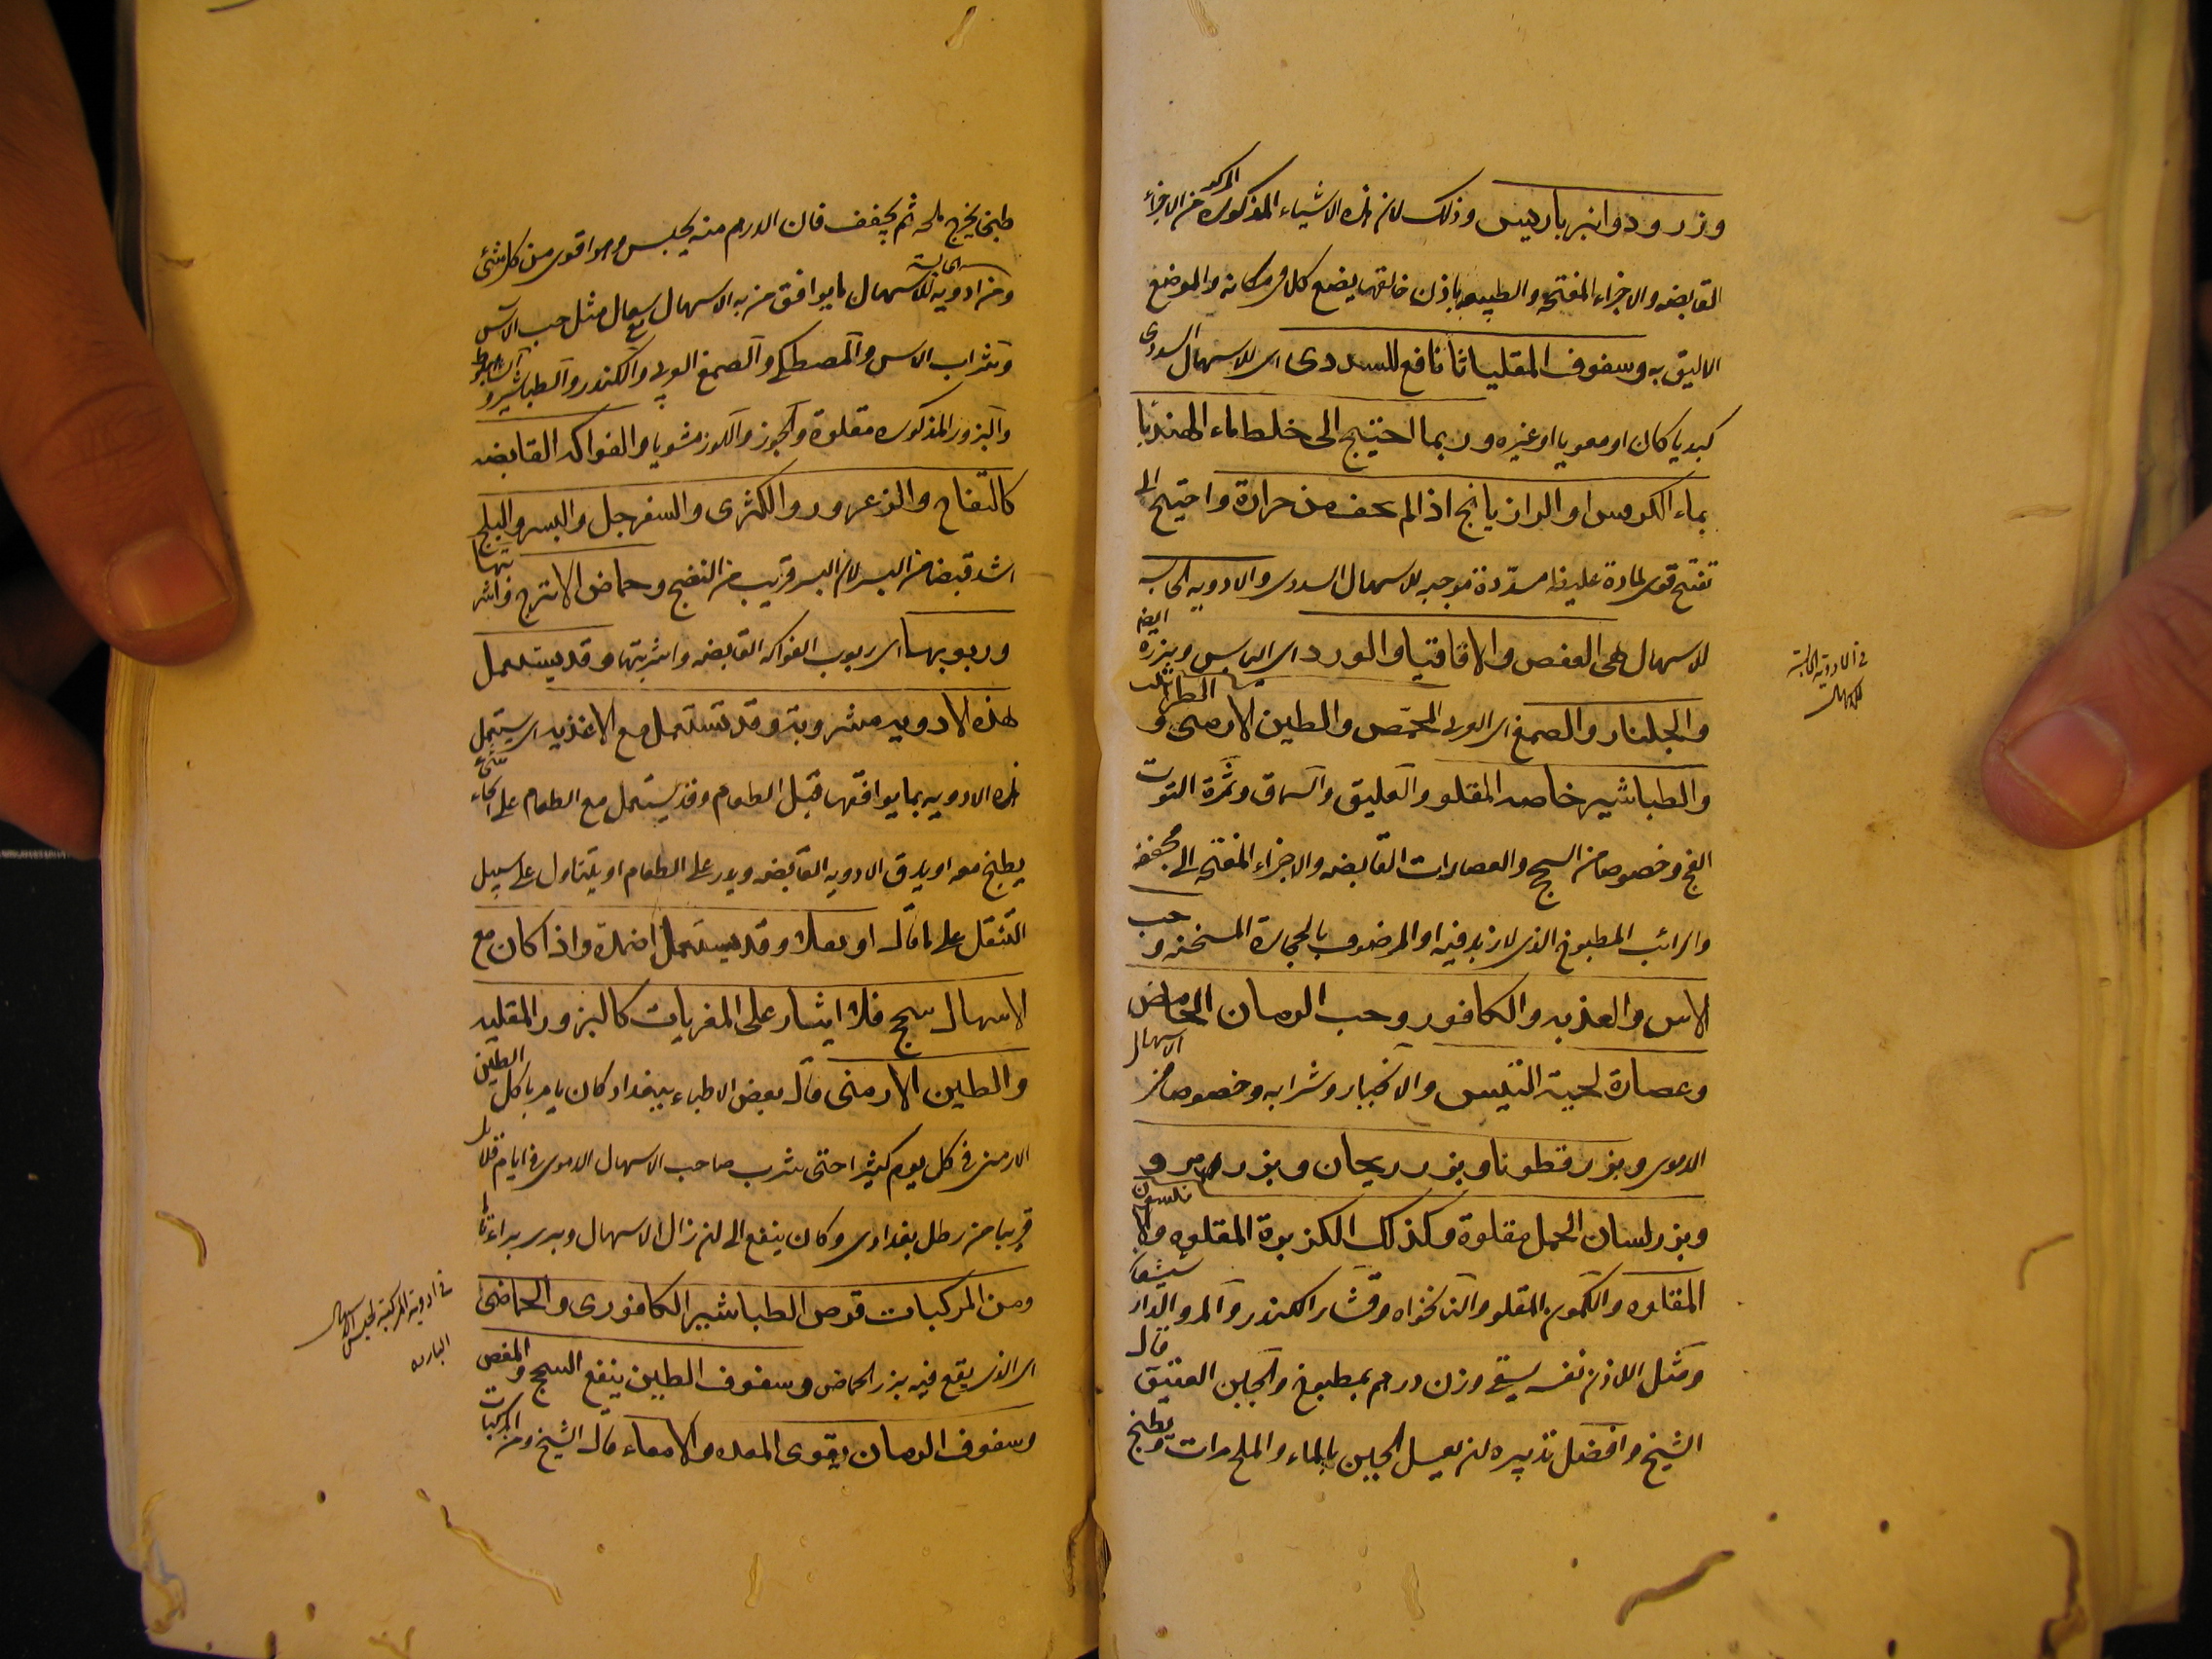 وزرورد وانبرباريس وذلك لان هذه الاشياء المذكورة المركبة من الاجزاء
القابضه والاجزاء المفتحة والطبيعه باذن خالقها يضع كلا فى مكانه والموضع
الاليق به وسفوف المقلياثا نافع للسددى اى للاسهال السددى
كبديا كان او معويا او غيره وربما احتيج الى خلط ماء الهندبا
بماء الكرفس او الرازيانج اذا لم يخف من حرارة واحتيج الى
تفتح قوى لمادة غليظه مسددة موجبه للاسهال السددى والادويه الحابسه
للاسهال هى العفص والاقاقيا والورد اى اليابس وبزره ايضا
والجلنار والصمغ اى العربى المحمص والطين الارمنى و الطراثيث
والطباشير خاصه المقلو والعليق والسماق وثمرة التوت
الفج وخصوصا من السحج والعصارات القابضه والاجزاء المفتحه الى مجففه
والرائب المطبوخ الذى لا زبد فيه او المرضوف بالحجارة المسخنه و حب
الاس والعذبه والكافور وحب الرمان الحامض
وعصارة لحية التيس والانجبار وشرابه وخصوصا من الاسهال
الدموى وبزر قطونا وبزر ريحان وبزر مرو
وبزر لسان الحمل مقلوة وكذلك الكزبرة المقلوه والانيسون
المقلوه والكمون المقلو والنانخواه وقشار الكندر والمر والدار شيشعان
ومثل اللاذن نفسه يسقى وزن درهم بمطبوخ والجبن العتيق قال
الشيخ وافضل تدبيره ان يغسل الجبن بالماء والملح مرات ويطبخ
فى الادوية الحابسة
للاسهال
طبخا يخرج ملحه ثم يجفف فان الدرهم منه يحبس وهو اقوى من كل شئ
ومن ادويه الاسهال ما يوافق من به الاسهال مع سعال مثل حب الاس
وشراب الاس والمصطكى والصمغ العربى والكندر والطباشير و الشاهبلوط
والبزور المذكوره مقلوة والجوز واللوز مشويا والفواكه القابضه
كالتفاح والزعرور والكمثرى والسفرجل والبسر والبلح
اشد قبضا من البسر لان البسر قريب من النضج وحماض الاترج واشربتها
وربوبها اى ربوب الفواكه القابضه واشربتها وقد يستعمل
هذه الادويه مشروبة وقد تستعمل مع الاغذيه اى يستعمل
هذه الادويه بما يوافقها قبل الطعام وقد يستعمل مع الطعام على انحاء شتى
يطبخ معه او يدق الادويه القابضه ويذر على الطعام او يتناول على سبيل
التنقل على ما قال او بعده وقد يستعمل اضمدة واذا كان مع
الاسهال سحج فلا ايثار على المغريات كالبزور المقليه
والطين الارمنى قال بعض الاطباء ببغداد كان يامر باكل الطين
الارمنى فى كل يوم كثيرا حتى شرب صاحب الاسهال الدموى فى ايام قلائل
قريبا من رطل بغدادى وكان ينفع الى ان زال الاسهال وبرى براءة تاما
ومن المركبات قرص الطباشير الكافورى والحماضى
اى الذى يقع فيه بزر الحماض وسفوف الطين ينفع السحج والمغص
وسفوف الرمان يقوى المعده والامعاء قال الشيخ ومن المركبات
فى ادوية المركبة لحبس الاسهال
الباردة